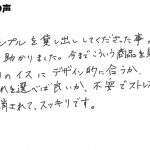 の声
ンプルを貸し出ししてくださった事。
助かりました。今までこういう商品を
のイスにデザイン的に合うか、
れを選べば良いか、不要でストレ
消されて、スッキリです。